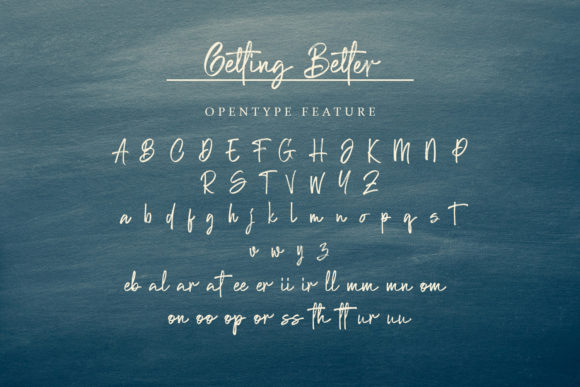 Getting Better
OPENTYPE FEATURE
A B C D E F G H J K M N P
R S T V W Y Z
a b d f g h j k l m n o p q s T
v w y z
eb al ar at ee er ii ir ll mm mn om
on oo op or ss th tt ur uu